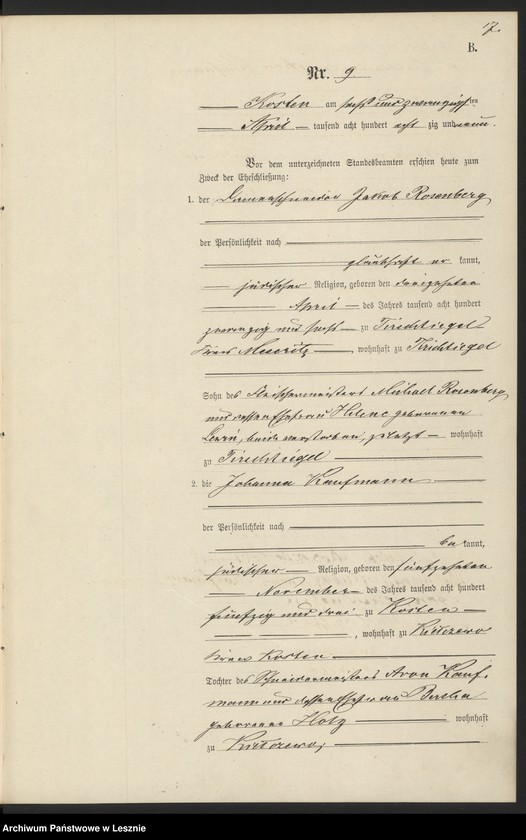 17.
B.
Nr. 9
Kosten am sechs und zwanzigsten
April tausend acht hundert acht zig und neun.
Vor dem unterzeichneten Standesbeamten erschien heute zum
Zweck der Eheschließung:
1. der Damenschneider Jakob Rosenberg
der Persönlichkeit nach
glaubhaft er kannt,
jüdischer Religion, geboren den dreizehnten
April des Jahres tausend acht hundert
zwanzig und sechs zu Tirschtiegel
Kreis Meseritz, wohnhaft zu Tirschtiegel
Sohn des Fleischermeisters Michael Rosenberg
und dessen Ehefrau Helene geborenen
Levin, beide verstorben, zuletzt wohnhaft
zu Tirschtiegel
2. die Johanna Kaufmann
der Persönlichkeit nach
be kannt,
jüdischer Religion, geboren den fünfzehnten
November des Jahres tausend acht hundert
fünfzig und drei zu Kosten
, wohnhaft zu
Kreis Kosten
Tochter des Schneidermeisters Aron Kauf-
mann und dessen Ehefrau
geborene Holz wohnhaft
zu
Archiwum Państwowe w Lesznie